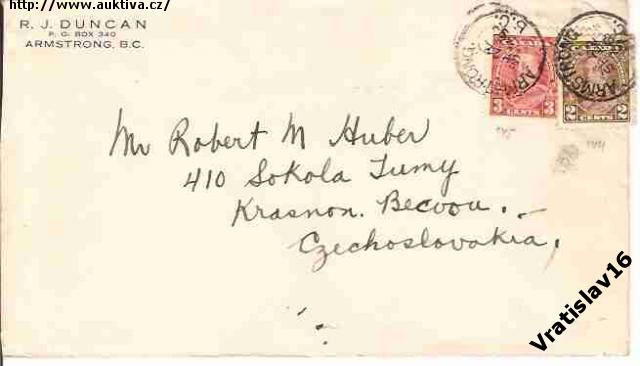 http://www.auktiva.cz/
R. J. DUNCAN
P. O. BOX 340
ARMSTRONG, B.C.
ARMSTRONG
B.C.
ARMSTRONG
3 CENTS 3
2 CENTS 2
Mr Robert M Huber
410 Sokola Tumy
Krasnon. Becvou.
Czechoslovakia,
Vratislav16